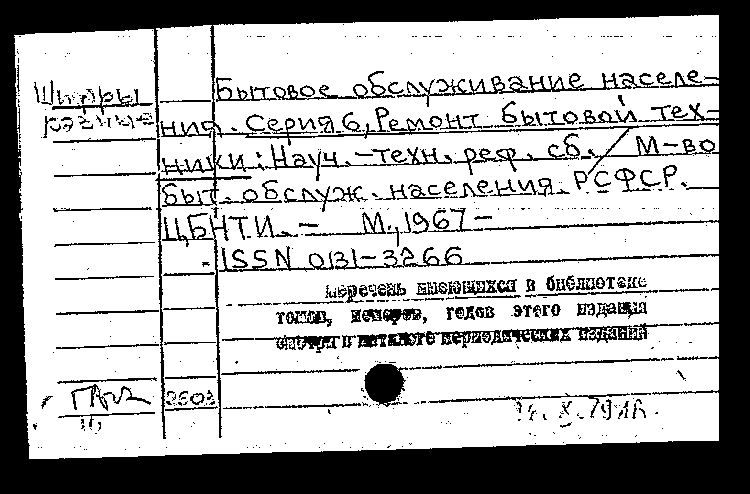 Шифры
разные
Бытовое обслуживание населе-
ния. Серия 6, Ремонт бытовой тех-
ники: Науч.-техн. реф. сб. / М-во
быт. обслуж. населения РСФСР.
ЦБНТИ. - М., 1967 -
ISSN 0131-3266
Перечень имеющихся в библиотеке
томов, номеров, годов этого издания
смотри в каталоге периодических изданий